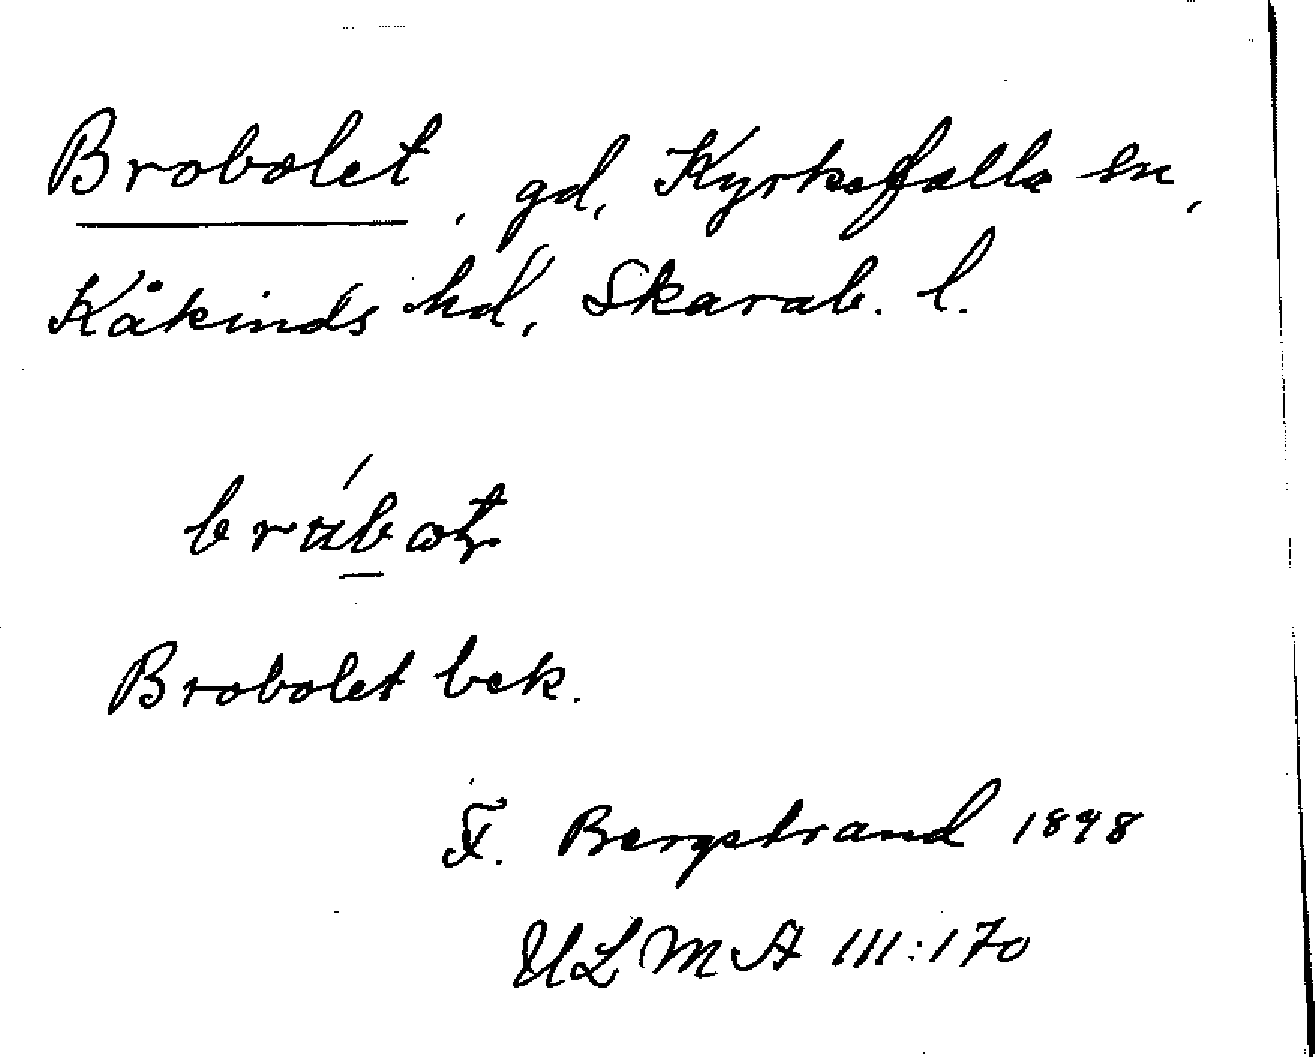 Brobolet, gd, Kyrkefalla sn,
Kåkinds hd, Skarab. l.
Brobolet bek.
F. Bergstrand 1898
ULMA III:170